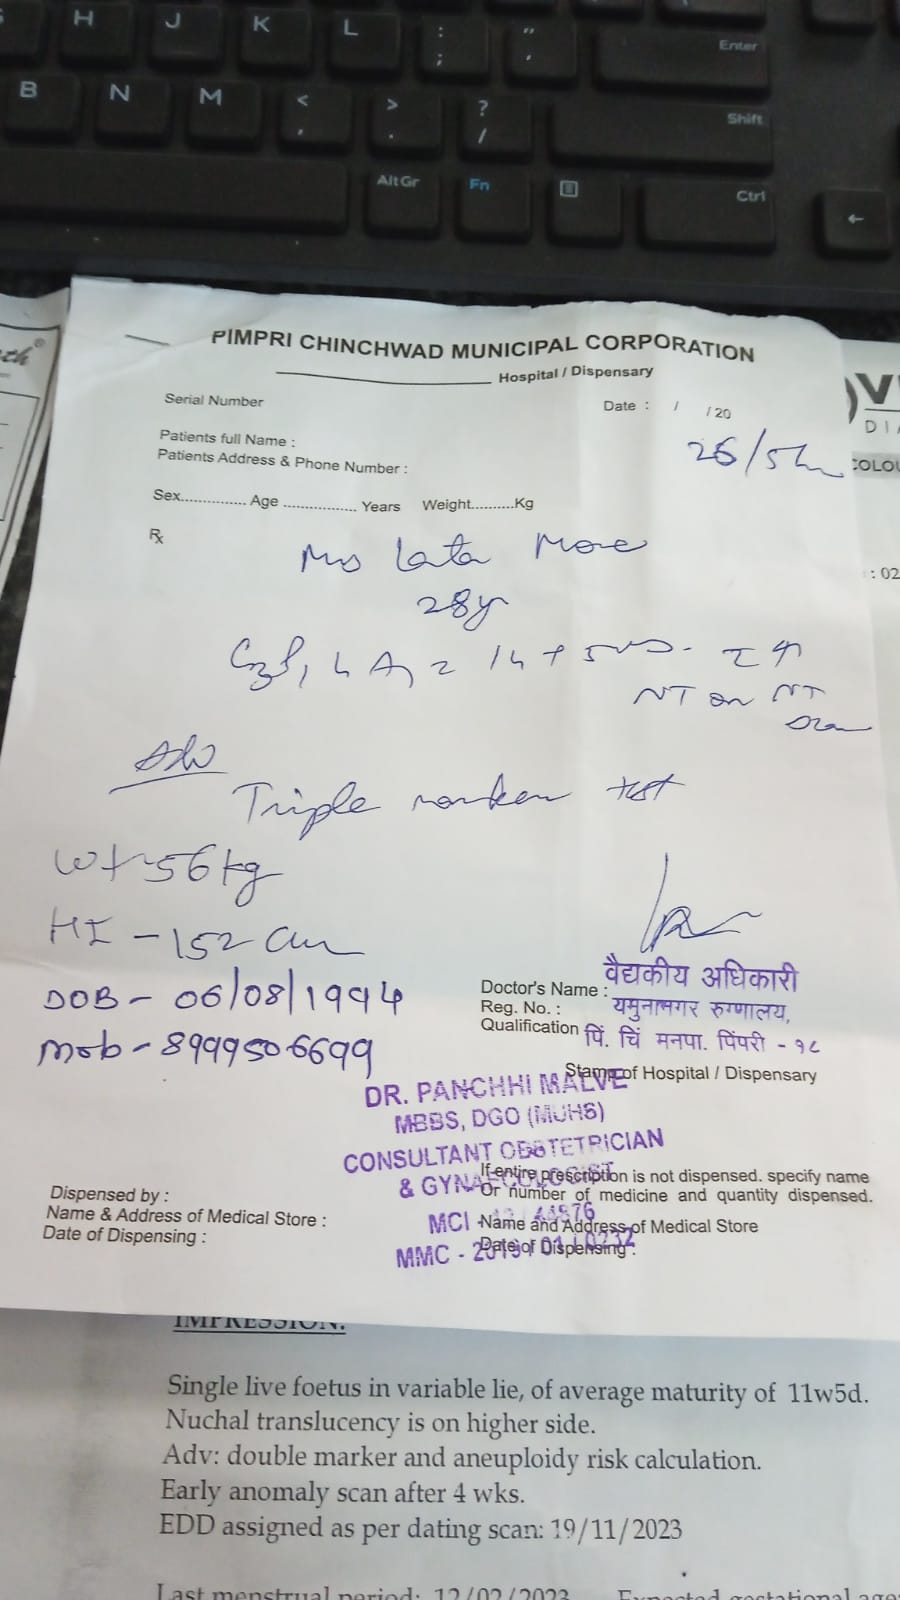 H J K L : ; " ' Enter
B N M < , > . ? / Shift
AltGr Fn Ctrl ←
PIMPRI CHINCHWAD MUNICIPAL CORPORATION
Hospital / Dispensary
Serial Number
Date : / / 20
26/5
Patients full Name :
Patients Address & Phone Number :
Sex............... Age ................. Years Weight..........Kg
℞
Mrs Lata More
28yr
NT on NT
Scan
Adv
Triple marker test
Wt-56kg
Ht - 152 cm
DOB - 06/08/1994
Mob - 8999506699
वैद्यकीय अधिकारी
Doctor's Name :
Reg. No. : यमुनानगर रुग्णालय,
Qualification पिं. चिं मनपा. पिंपरी - १८
Stamp of Hospital / Dispensary
DR. PANCHHI MALVE
MBBS, DGO (MUHS)
CONSULTANT OBSTETRICIAN
& GYNAECOLOGIST
If entire prescription is not dispensed. specify name
Or number of medicine and quantity dispensed.
Dispensed by :
Name & Address of Medical Store :
Date of Dispensing :
MCI -
Name and Address of Medical Store
MMC -
Date of Dispensing :
IMPRESSION:
Single live foetus in variable lie, of average maturity of 11w5d.
Nuchal translucency is on higher side.
Adv: double marker and aneuploidy risk calculation.
Early anomaly scan after 4 wks.
EDD assigned as per dating scan: 19/11/2023
Last menstrual period: 12/02/2023 Expected gestational age